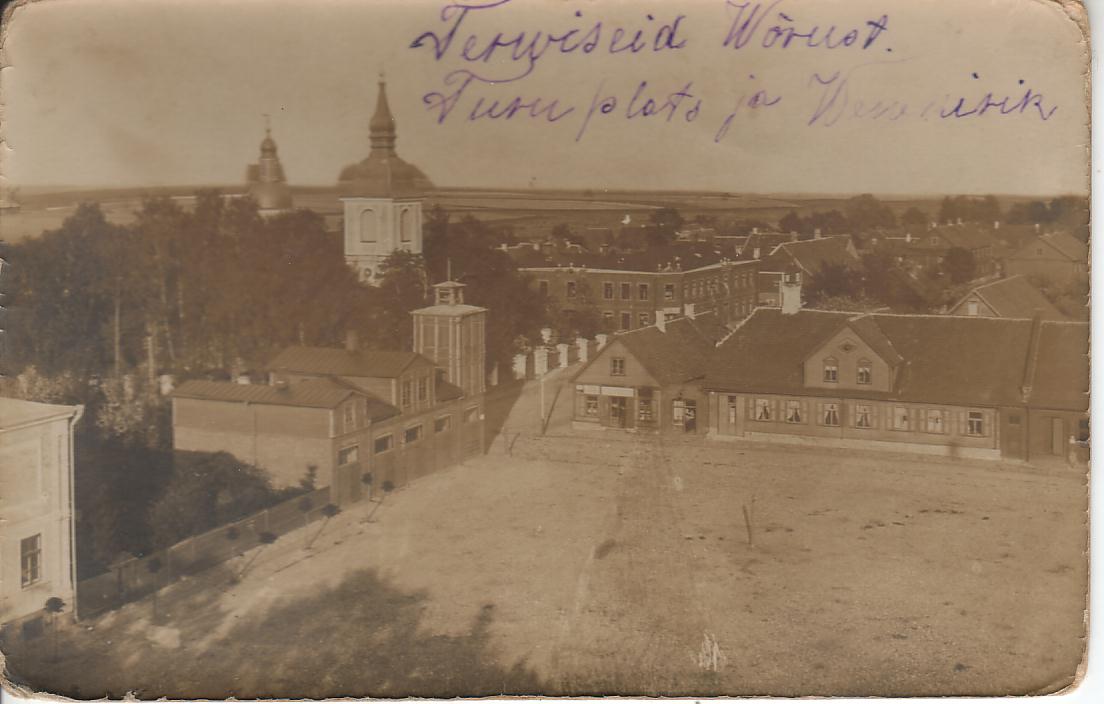 Terwiseid Wõrust.
Turu plats ja Wenekirik